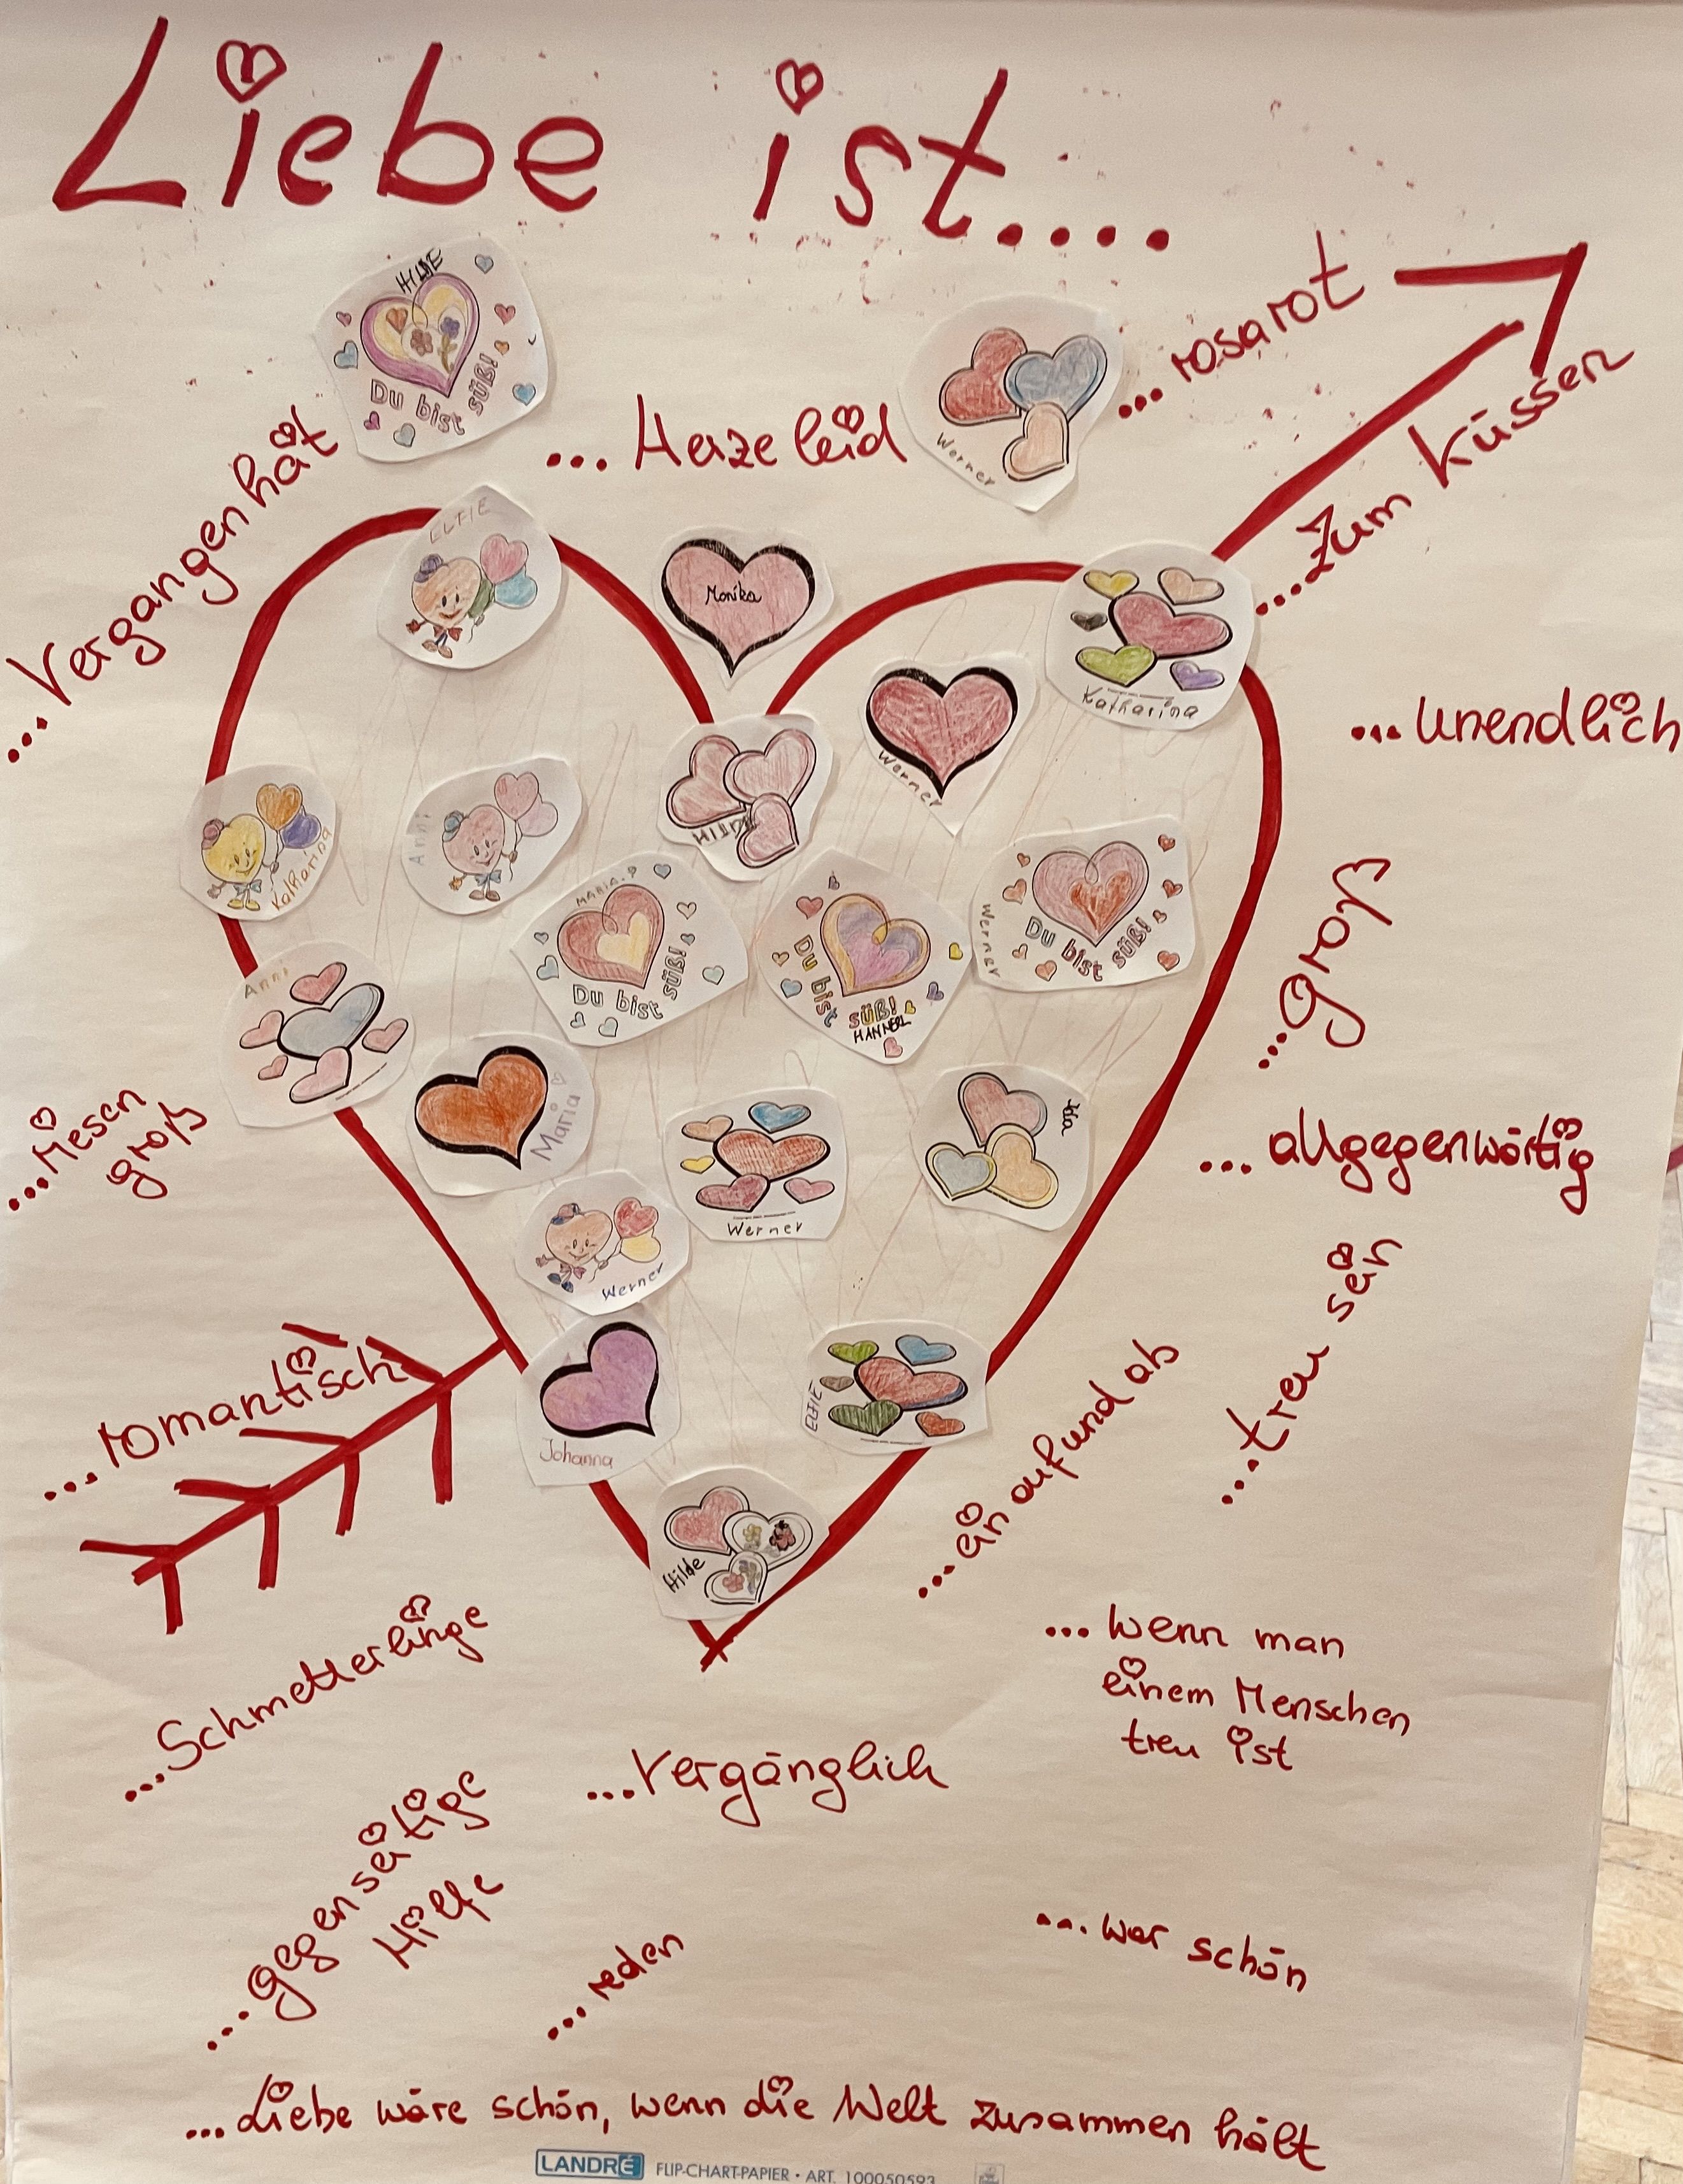 Liebe ist....
HILDE
Du bist süß!
... Herzeleid
Werner
... rosarot
... Vergangenhät
... zum Küssen
ELFIE
Monika
Katharina
Werner
... unendlich
HILDE
Katharina
Anni
MARIA.P
Du bist süß!
Du bist süß!
HANNERL
Werner
Du bist süß!
... groß
Anni
Maria
Werner
Ida
... riesen
groß
... allgegenwärtig
Werner
... treu sein
... romantisch
Johanna
ELFIE
... ein auf und ab
Hilde
... Schmetterlinge
... wenn man
einem Menschen
treu ist
... Vergänglich
... gegenseitige
Hilfe
... reden
... war schön
... Liebe wäre schön, wenn die Welt zusammen hält
LANDRÉ FLIP-CHART-PAPIER • ART. 100050593